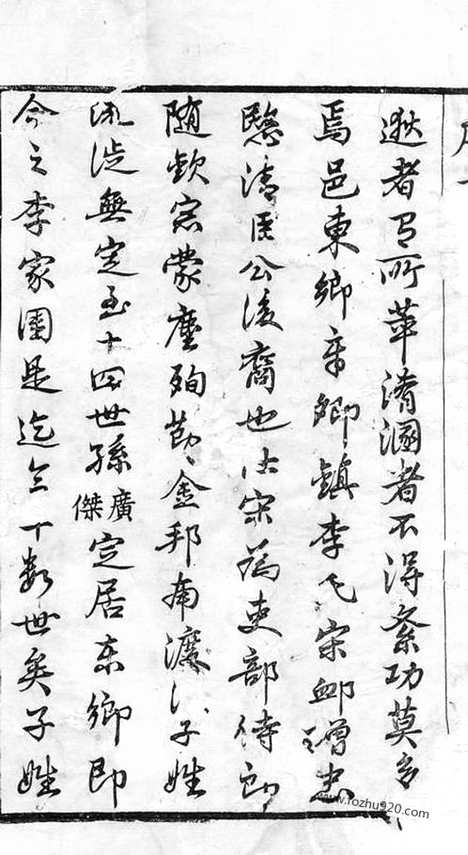 逖者有所萃淆溷者不得紊功莫多
焉邑東鄉章卿鎮李氏宋卹贈忠
愍清臣公後裔也仕宋為吏部侍郎
隨欽宗蒙塵殉節金邦南渡後子姓
流徙無定至十四世孫廣傑定居東鄉即
今之李家園是迄今數世矣子姓
www.fozhu920.com